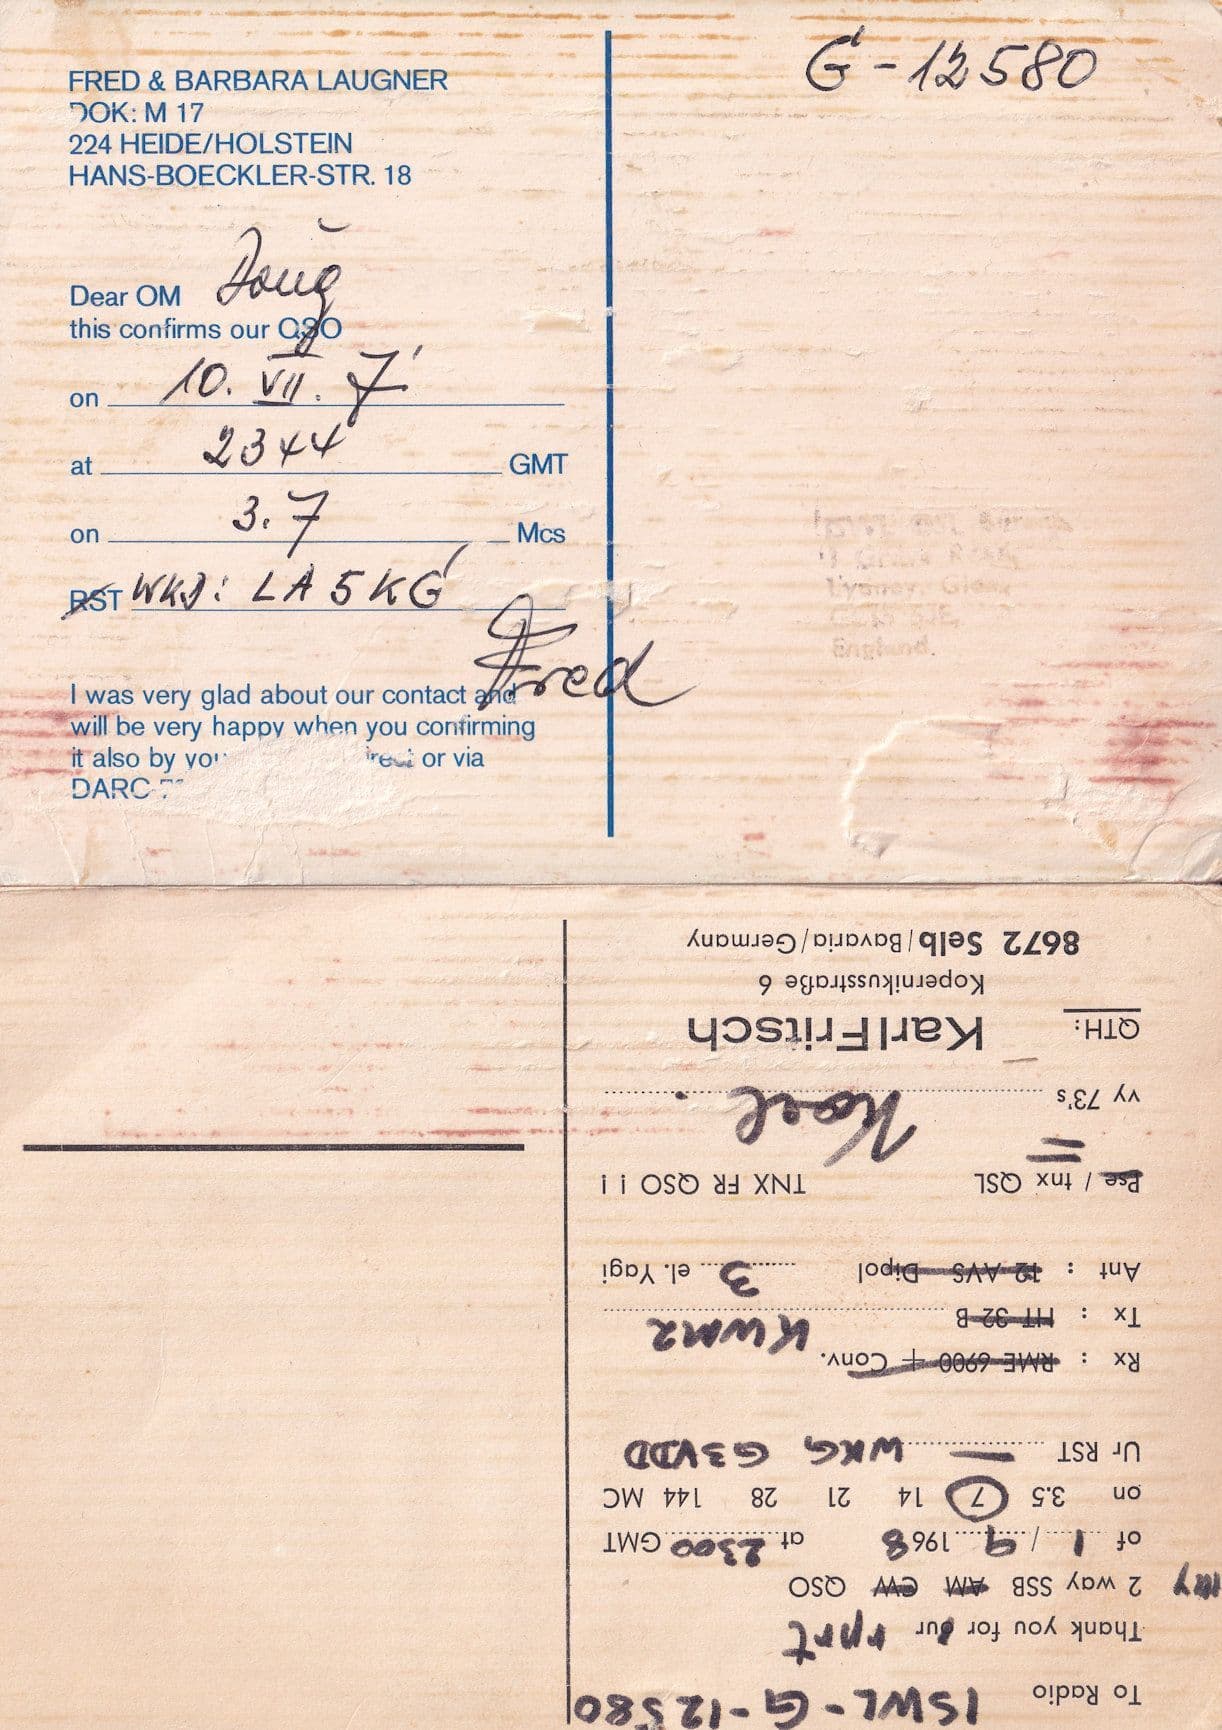 G-12580
FRED & BARBARA LAUGNER
DOK: M 17
224 HEIDE/HOLSTEIN
HANS-BOECKLER-STR. 18
Dear OM Doug
this confirms our QSO
on 10. VII. 7'
at 2344 GMT
on 3.7 Mcs
RST WKD: LA5KG
Fred
I was very glad about our contact and
will be very happy when you confirming
it also by or via
DARC
England.
To Radio ISWL-G-12580
Thank you for our rprt
2 way SSB AM CW QSO
of 1 / 9 1968 at 2300 GMT
on 3.5 7 14 21 28 144 MC
Ur RST — WKG G3VDD
Rx : RME 6900 + Conv.
Tx : HT 32-B KWM2
Ant : 12 AVS Dipol 3 el. Yagi
Pse / tnx QSL TNX FR QSO ! !
vy 73's
QTH: Karl Fritsch
Kopernikusstraße 6
8672 Selb/Bavaria/Germany